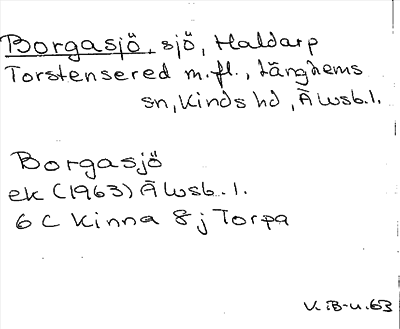 Borgasjö, sjö, Haldarp
Torstensered m.fl., Länghems
sn, Kinds hd, Älvsb.l.
Borgasjö
ek (1963) Älvsb. l.
6 C Kinna 8 j Torpa
V.iB-u.63